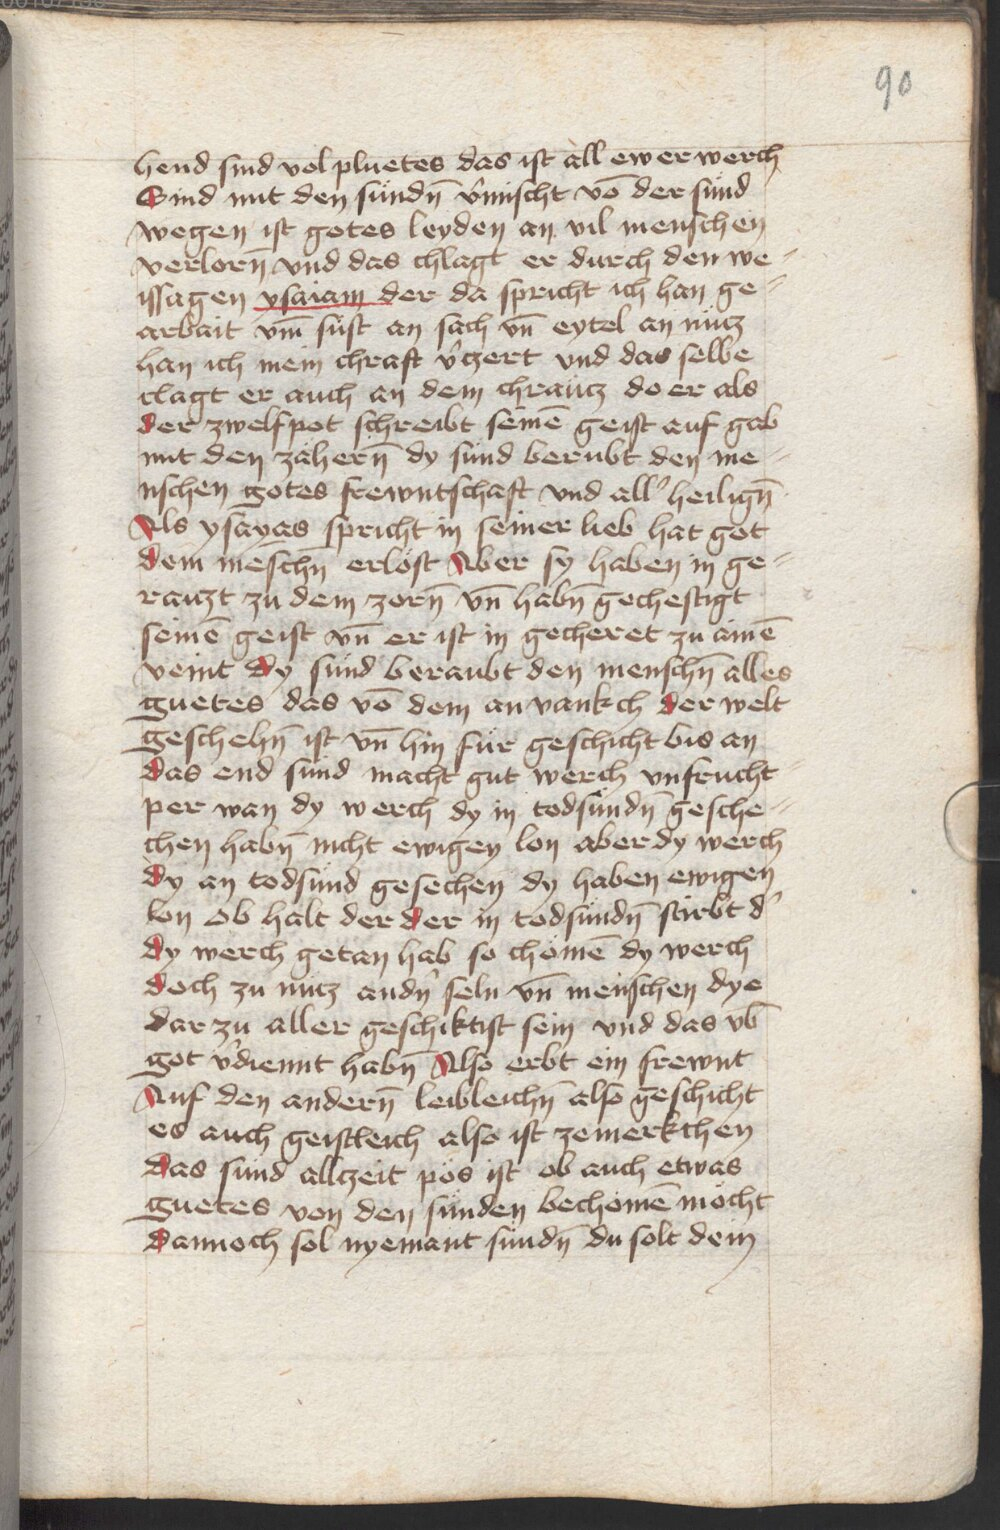 90
hend sind vol pluetes das ist all ewer werch
Sind mit den sündn̄ v̓mischt vō der sünd
wegen ist gotes leyden an vil menschen
verlorn̄ vnd das chlagt er durch den we⸗
issagen ysaiam der da spricht ich han ge⸗
arbait vm̄ süst an sach vn̄ eytel an nücz
han ich mein chraft v̓czert vnd das selbe
clagt er auch an dem chräucz do er als
der zwelfpot schreibt seinē geist auf gab
mit den zähern̄ dy sünd berubt den me⸗
nschen gotes frewntschaft vnd all̓ heilign̄
Als ysayas spricht in seiner lieb hat got
dem meschn̄ erlöst Aber sy haben in ge⸗
rauzt zu dem zorn̄ vn̄ habn̄ gechestigt
seinē geist vn̄ er ist in gecheret zu ainē
veint dy sünd beraubt den menschn̄ alles
guetes das vō dem anvankch der welt
geschehn̄ ist vn̄ hin für geschicht bis an
das end sünd macht gut werch vnfrucht⸗
per wan dy werch dy in todsündn̄ gesche⸗
chen habn̄ nicht ewigen lon aber dy werch
dy an todsünd gesechen dy haben ewigen
lon ob halt der der in todsündn̄ stirbt d̓
dy werch getan hab so chömē dy werch
doch zu nucz andn̓ seln vn̄ menschen dye
dar zu aller geschiktist sein vnd das vb̄
got v̓diennt habn̄ Also erbt ein frewnt
Auf den andern̄ leibleichn̄ also geschicht
es auch geistleich also ist zemerkchen
das sünd allczeit pös ist ob auch etwas
guetes von den sünden bechömē möcht
dannoch sol nyemant sündn̄ du solt dein